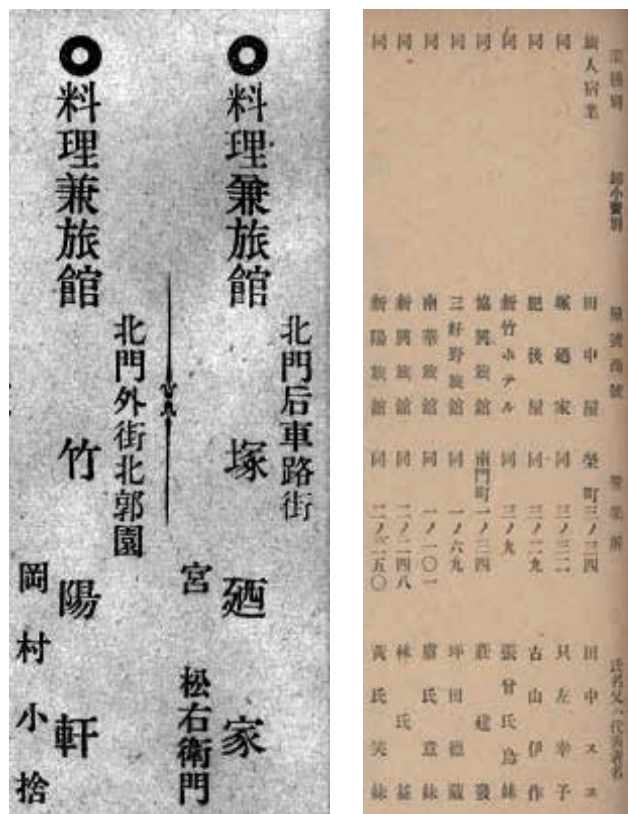 北門后車路街
料理兼旅館 塚廼家
宮松右衛門
北門外街北郭園
料理兼旅館 竹陽軒
岡村小捨
業種別 卸小賣別 屋號商號 營業所 氏名又ハ代表者名
旅人宿業 田中屋 榮町三ノ三四 田中スエ
同 塚廼家 同 三ノ三二 只左幸子
同 肥後屋 同 三ノ二九 古山伊作
同 新竹ホテル 同 三ノ九 張曾氏烏妹
同 協興旅館 南門町一ノ三四 莊建發
同 三好野旅館 同 一ノ六九 坪田德藏
同 南華旅館 同 一ノ一〇一 氏意妹
同 新興旅館 同 二ノ二四八 林氏益
同 新陽旅館 同 二ノ二五〇 黃氏笑妹